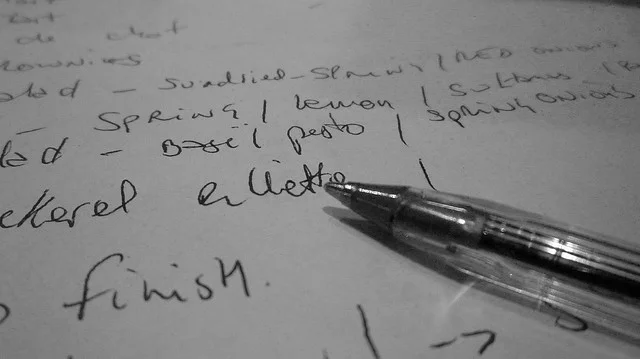 tart
de chat
rownies
lad - Sundried - Spring / RED onions
- SPRING / lemon / Sultanas
lad - Basil pesto / SPRING ONIONS
ckerel /
finish.